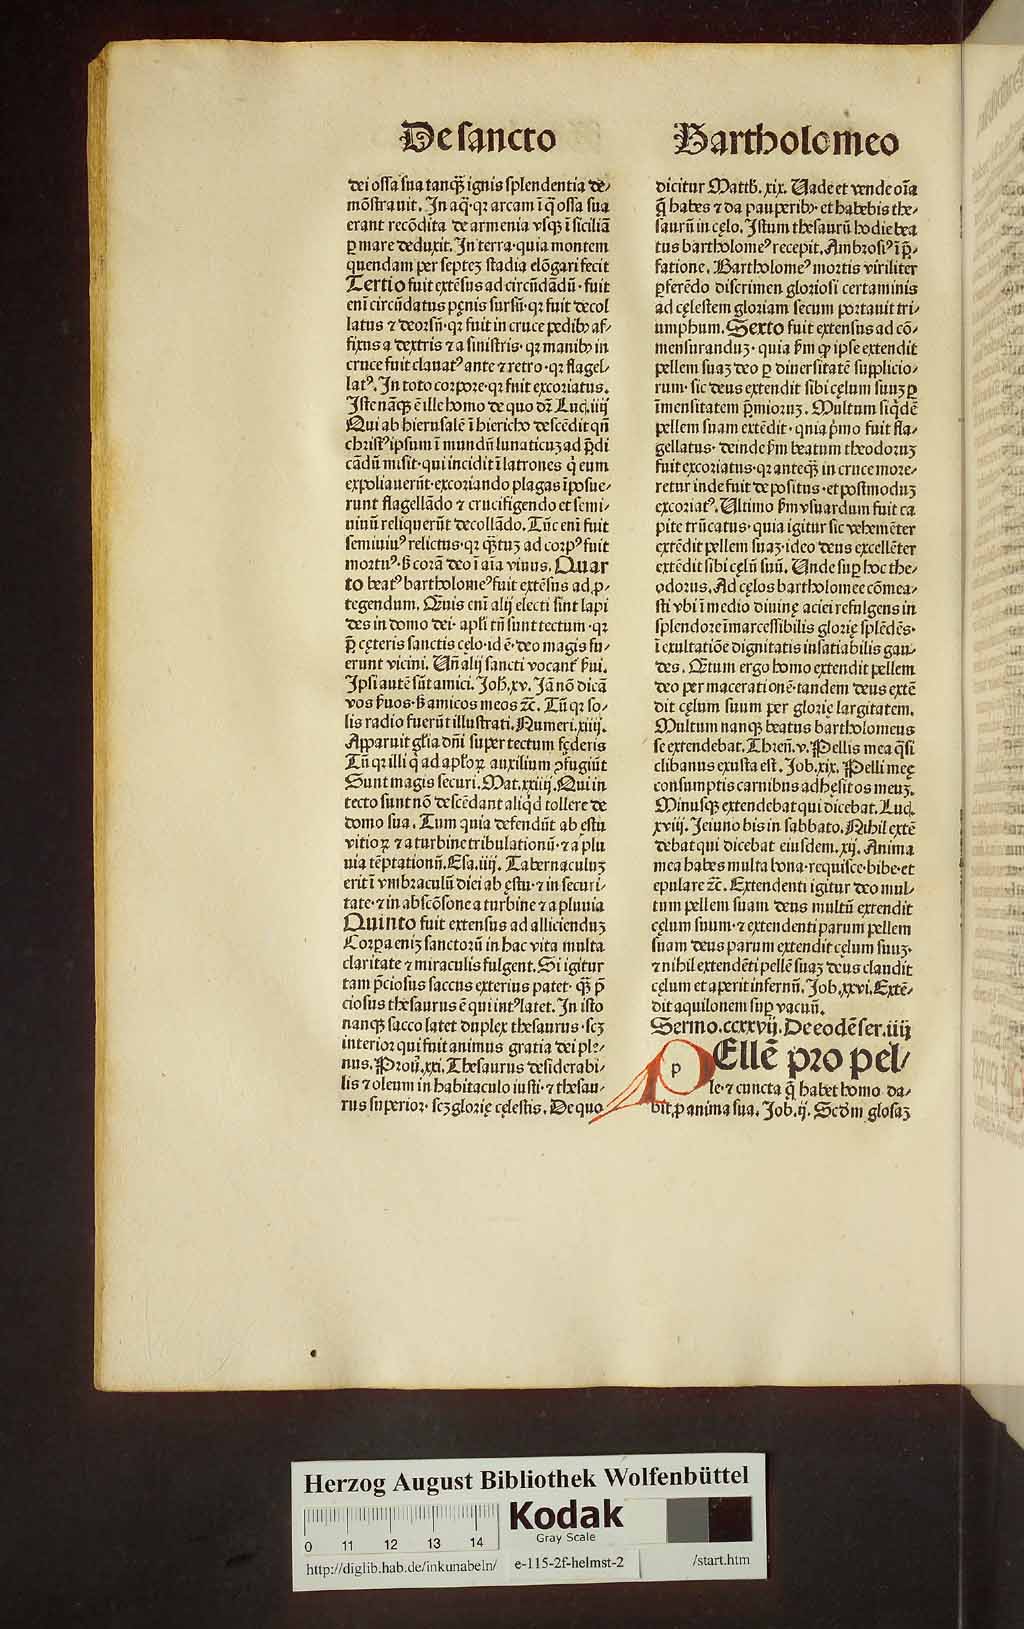 De sancto
Bartholomeo
dei ossa sua tanqȝ ignis splendentia de⸗
mōstrauit. In aq̄· qꝛ arcam ī q̄ ossa sua
erant recōdita de armenia vsqȝ ī siciliā
ꝑ mare deduxit. In terra· quia montem
quendam per septeꝫ stadia elōgari fecit
Tertio fuit extēsus ad circūdādū· fuit
enī circūdatus pęnis sursū· qꝛ fuit decol
latus ⁊ deorsū· qꝛ fuit in cruce pedibꝰ af⸗
fixus a dextris ⁊ a sinistris· qꝛ manibꝰ in
cruce fuit clauatꝰ ante ⁊ retro· qꝛ flagel⸗
latꝰ. In toto corpore· qꝛ fuit excoriatus.
Iste nāqȝ ē ille homo de quo dꝛ̄ Luc̄. iiij
Qui ab hierusalē ī hiericho descēdit qn̄
christꝰ ipsum ī mundū lunaticuꝫ ad p̄di
cādū misit· qui incidit ī latrones q̇ eum
expoliauerūt· excoriando plagas īposue⸗
runt flagellādo ⁊ crucifigendo et semi⸗
uiuū reliquerūt decollādo. Tūc enī fuit
semiuiuꝰ relictus· qꝛ qȝ̄tuꝫ ad corpꝰ fuit
mortuꝰ· ß corā deo ī aīa viuus. Quar
to beatꝰ bartholomeꝰ fuit extēsus ad ꝓ⸗
tegendum. Qȝ̄uis enī alij electi sint lapi
des in domo dei· apl̄i tn̄ sunt tectum· qꝛ
p̄ cęteris sanctis cęlo· id ē· deo magis fu⸗
erunt vicini. Un̄ alij sancti vocant̄ ẜui.
Ipsi autē sūt amici. Joh̄. xv. Jā nō dicā
vos ẜuos· ß amicos meos ⁊c̄. Tū qꝛ so⸗
lis radio fuerūt illustrati. Numeri. xiiij.
Apparuit gl̄ia dn̄i super tectum fęderis
Tū qꝛ illi q̇ ad apl̓oꝝ auxilium ꝯfugiūt
Sunt magis securi. Mat. xxiiij. Qui in
tecto sunt nō descēdant aliq̇d tollere de
domo sua. Tum quia defendūt ab ęstu
vitioꝝ ⁊ a turbine tribulationū· ⁊ a plu
uia tēptationū. Esa. iiij. Tabernaculuꝫ
erit ī vmbraculū diei ab ęstu· ⁊ in securi⸗
tate· ⁊ in abscōsone a turbine ⁊ a pluuia
Quinto fuit extensus ad alliciendūꝫ
Corꝑa eniꝫ sanctorū in hac vita multa
claritate ⁊ miraculis fulgent. Si igitur
tam p̄ciosus saccus exterius patet· qȝ̄ p̄
ciosus thesaurus ē qui intꝰ latet. In isto
nanqȝ sacco latet duplex thesaurus· scꝫ
interior qui fuit animus gratia dei ple⸗
nus. Prou̓. xxi. Thesaurus desiderabi⸗
lis ⁊ oleum in habitaculo iusti· ⁊ thesau⸗
rus superior· scꝫ glorię cęlestis. De quo
dicitur Matth̄. xix. Uade et vende oīa
q̄ habes ⁊ da pauperibꝰ· et habebis the⸗
saurū in cęlo. Istum thesaurū hodie bea
tus bartholomeꝰ recepit. Ambrosiꝰ ī p̄⸗
fatione. Bartholomeꝰ mortis viriliter
ꝑferēdo discrimen gloriosi certaminis
ad cęlestem gloriam secum portauit tri⸗
umphum. Sexto fuit extensus ad cō⸗
mensuranduꝫ· quia ẜm ꝙ ipse extendit
pellem suaꝫ deo ꝑ diuersitatē supplicio⸗
rum· sic deus extendit sibi cęlum suuꝫ ꝑ
īmensitatem p̄mioruꝫ. Multum siq̇dē
pellem suam extēdit· quia p̓mo fuit fla⸗
gellatus· deinde ẜm beatum theodoruꝫ
fuit excoriatus· qꝛ anteqȝ̄ in cruce more⸗
retur inde fuit depositus· et postmoduꝫ
excoriatꝰ. Ultimo ẜm vsuardum fuit ca
pite trūcatus· quia igitur sic vehemēter
extēdit pellem suaꝫ· ideo deus excellēter
extēdit sibi cęlū suū. Unde suꝑ hoc the⸗
odorus. Ad cęlos bartholomee cōmea⸗
sti vbi ī medio diuinę aciei refulgens in
splendore īmarcessibilis glorię splēdēs·
ī exultatiōe dignitatis insatiabilis gau⸗
des. Qȝ̄tum ergo homo extendit pellem
deo per macerationē· tandem deus extē
dit cęlum suum per glorię largitatem.
Multum nanqȝ beatus bartholomeus
se extendebat. Thren̄. v. Pellis mea q̄si
clibanus exusta est. Job. xix. Pelli meę
consumptis carnibus adhęsit os meuꝫ.
Minusqȝ extendebat qui dicebat. Luc̄.
xviij. Jeiuno bis in sabbato. Nihil extē
debat qui dicebat eiusdem. xij. Anima
mea habes multa bona· requisce· bibe· et
epulare ⁊c̄. Extendenti igitur deo mul⸗
tum pellem suam deus multū extendit
cęlum suum· ⁊ extendenti parum pellem
suam deus parum extendit cęlum suuꝫ·
⁊ nihil extendēti pellē suaꝫ deus claudit
cęlum et aperit infernū. Job. xxvi. Extē⸗
dit aquilonem suꝑ vacuū.
Sermo. ccxxvij. De eodē ser. iiij
PEllē pro pel⸗
le· ⁊ cuncta q̄ habet homo da⸗
bit ꝓ anima sua. Job. ij. Scd̄m glosaꝫ
Herzog August Bibliothek Wolfenbüttel
0 11 12 13 14
Kodak
Gray Scale
http://diglib.hab.de/inkunabeln/ e-115-2f-helmst-2 /start.htm